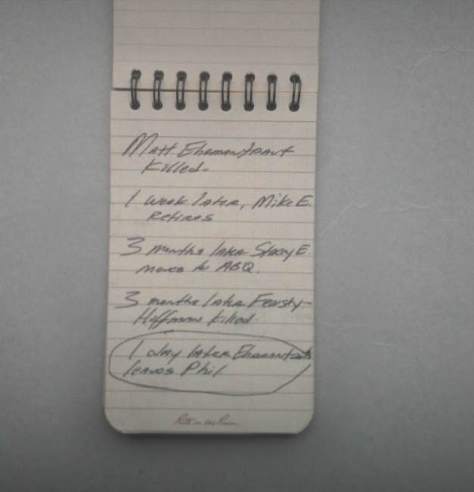 Matt Ehrmantraut
Killed-
1 week later, Mike E.
Retires
3 months later Stacy E.
moves to ABQ.
3 months later Fensky-
Hoffman Killed
1 day later Ehrmantraut
leaves Phil